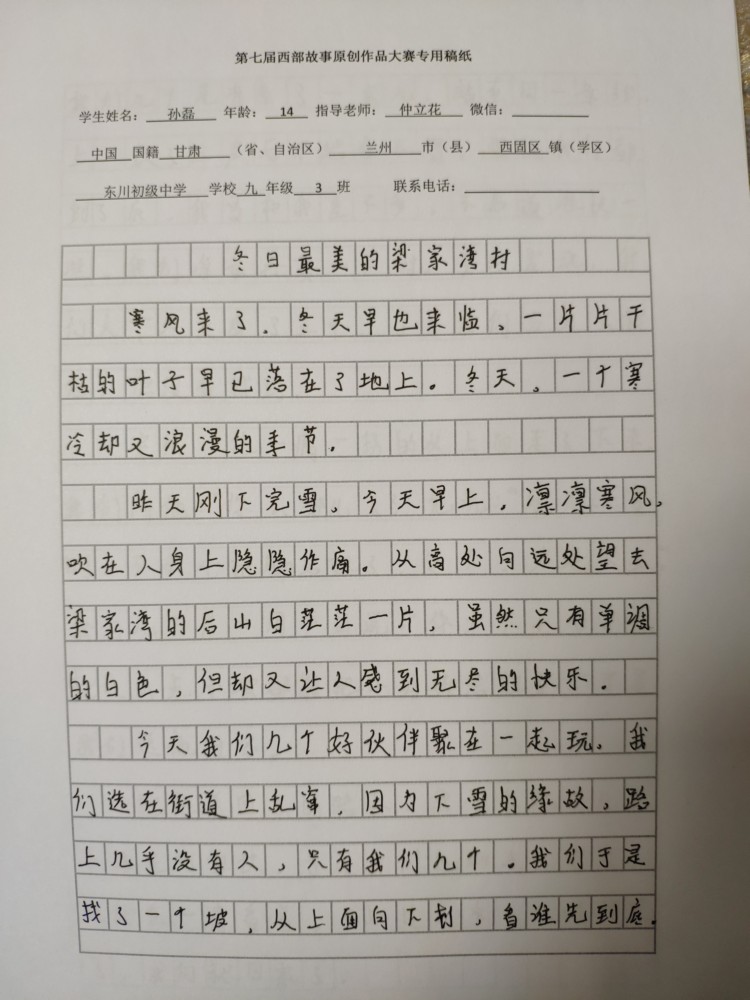 第七届西部故事原创作品大赛专用稿纸
学生姓名： 孙磊 年龄： 14 指导老师： 仲立花 微信：
中国 国籍 甘肃 （省、自治区） 兰州 市（县） 西固区 镇（学区）
东川初级中学 学校 九 年级 3 班 联系电话：
冬日最美的梁家湾村
寒风来了，冬天早也来临，一片片干
枯的叶子早已落在了地上。冬天，一个寒
冷却又浪漫的季节。
昨天刚下完雪，今天早上，凛凛寒风，
吹在人身上隐隐作痛。从高处向远处望去
梁家湾的后山白茫茫一片，虽然只有单调
的白色，但却又让人感到无尽的快乐。
今天我们几个好伙伴聚在一起玩。我
们选在街道上乱窜，因为下雪的缘故，路
上几乎没有人，只有我们几个。我们于是
找了一个坡，从上面向下划，看谁先到底。